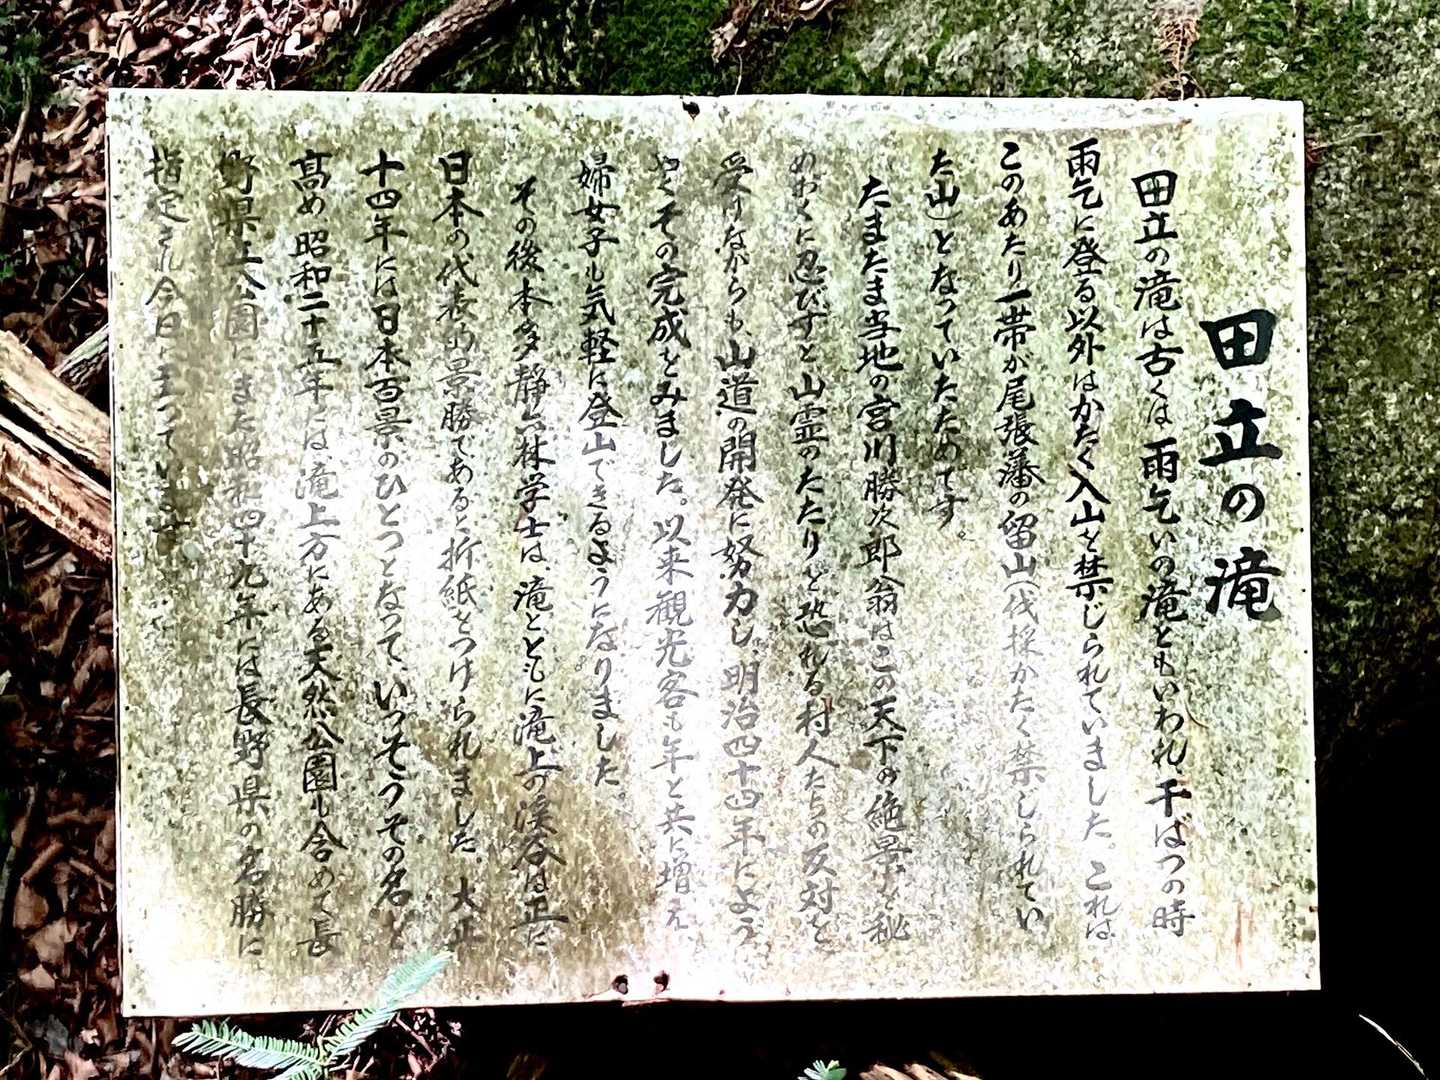 田立の滝
田立の滝は古くは雨乞いの滝ともいわれ干ばつの時
雨乞に登る以外はかたく入山を禁じられていました。これは
このあたり一帯が尾張藩の留山(伐採かたく禁じられてい
た山)となっていたためです。
たまたま当地の宮川勝次郎翁はこの天下の絶景を秘
めおくに忍びずと山霊のたたりと恐れる村人たちの反対を
受けながらも、山道の開発に努力し、明治四十四年によう
やくその完成をみました。以来観光客も年と共に増え、
婦女子も気軽に登山できるようになりました。
その後本多静六林学士は、滝とともに滝上の渓谷は正に
日本の代表的景勝であると折紙をつけられました。大正
十四年には日本百景のひとつとなって、いっそうその名を
高め、昭和二十五年には滝上方にある天然公園も含めて長
野県立公園にまた昭和四十九年には長野県の名勝に
指定され今日に至っています